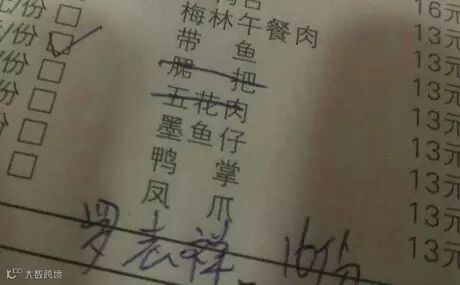 16元
13元
元/份 □ 梅林午餐肉 13元
元/份 □ 带鱼 13元
/份 □ 肥把 13元
/份 □ 五花肉 13元
份 □ 墨鱼仔 13元
份 □ 鸭掌 13元
□ 凤爪 13元
罗志祥 16份
大数跨境